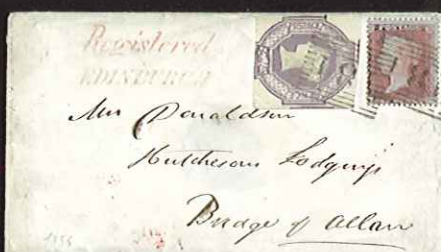 Registered
EDINBURGH
Mrs Donaldson
Hutchesons Lodgings
Bridge of Allan